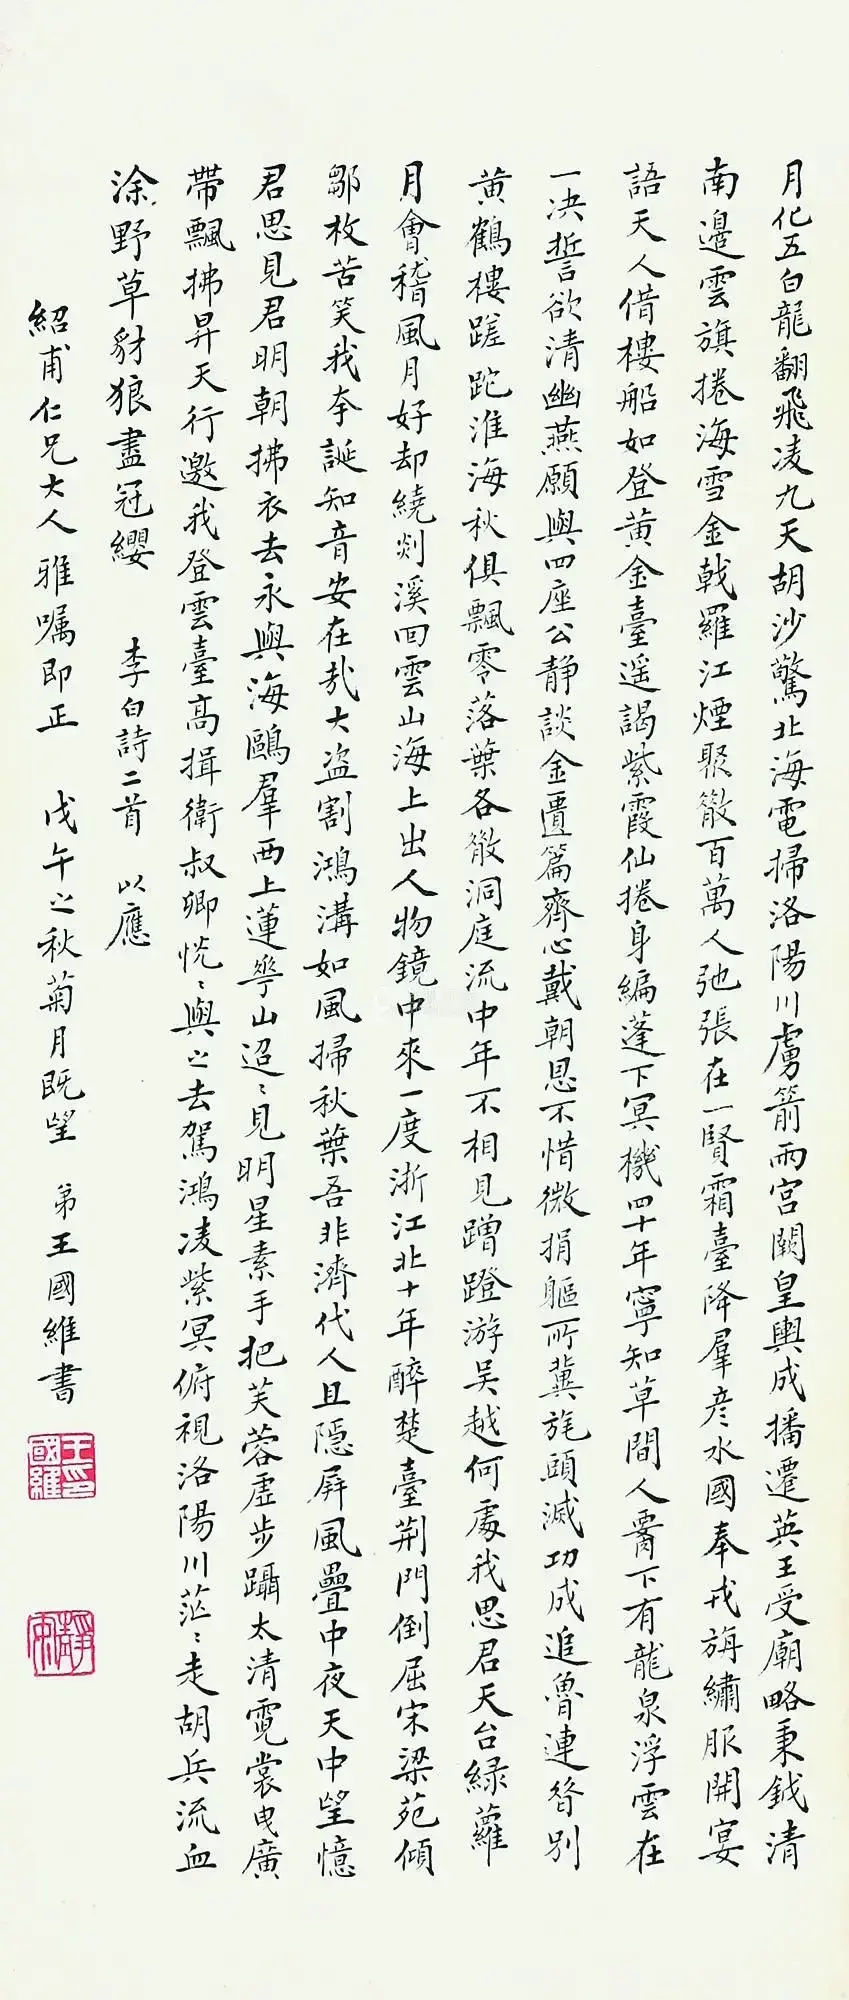 月化五白龍翻飛凌九天胡沙驚北海電掃洛陽川虜箭雨宮闕皇輿成播遷英王受廟略秉鉞清
南邊雲旗捲海雪金戟羅江煙聚散百萬人弛張在一賢霜臺降羣彦水國奉戎旃繡服開宴
語天人借樓船如登黃金臺遥謁紫霞仙捲身編蓬下冥機四十年寧知草間人霄下有龍泉浮雲在
一决誓欲清幽燕願與四座公静談金匱篇齊心戴朝恩不惜微捐軀所冀旄頭滅功成追魯連昔別
黃鶴樓蹉跎淮海秋俱飄零落葉各散洞庭流中年不相見蹭蹬游吴越何處我思君天台緑蘿
月會稽風月好却繞剡溪回雲山海上出人物鏡中來一度浙江北十年醉楚臺荆門倒屈宋梁苑傾
鄒枚苦笑我夸誕知音安在哉大盗割鴻溝如風掃秋葉吾非濟代人且隱屏風疊中夜天中望憶
君思見君明朝拂衣去永與海鷗羣西上蓮華山迢〻見明星素手把芙蓉虛步躡太清霓裳曳廣
帶飄拂昇天行邀我登雲臺高揖衛叔卿恍〻與之去駕鴻凌紫冥俯視洛陽川茫〻走胡兵流血
涂野草豺狼盡冠纓 李白詩二首 以應
紹甫仁兄大人雅嘱即正 戊午之秋菊月既望 弟王國維書
王國維印
靜安